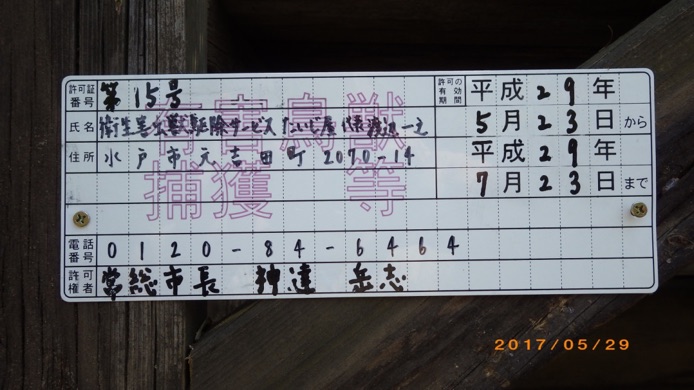 許可証番号 第15号
許可の有効期間 平成29年5月23日から
平成29年7月23日まで
氏名 衛生害虫獣駆除サービス たいじ屋 代表渡辺一之
住所 水戸市元吉田町2070-14
有害鳥獣
捕獲等
電話番号 0120-84-6464
許可権者 常総市長 神達 岳志
2017/05/29